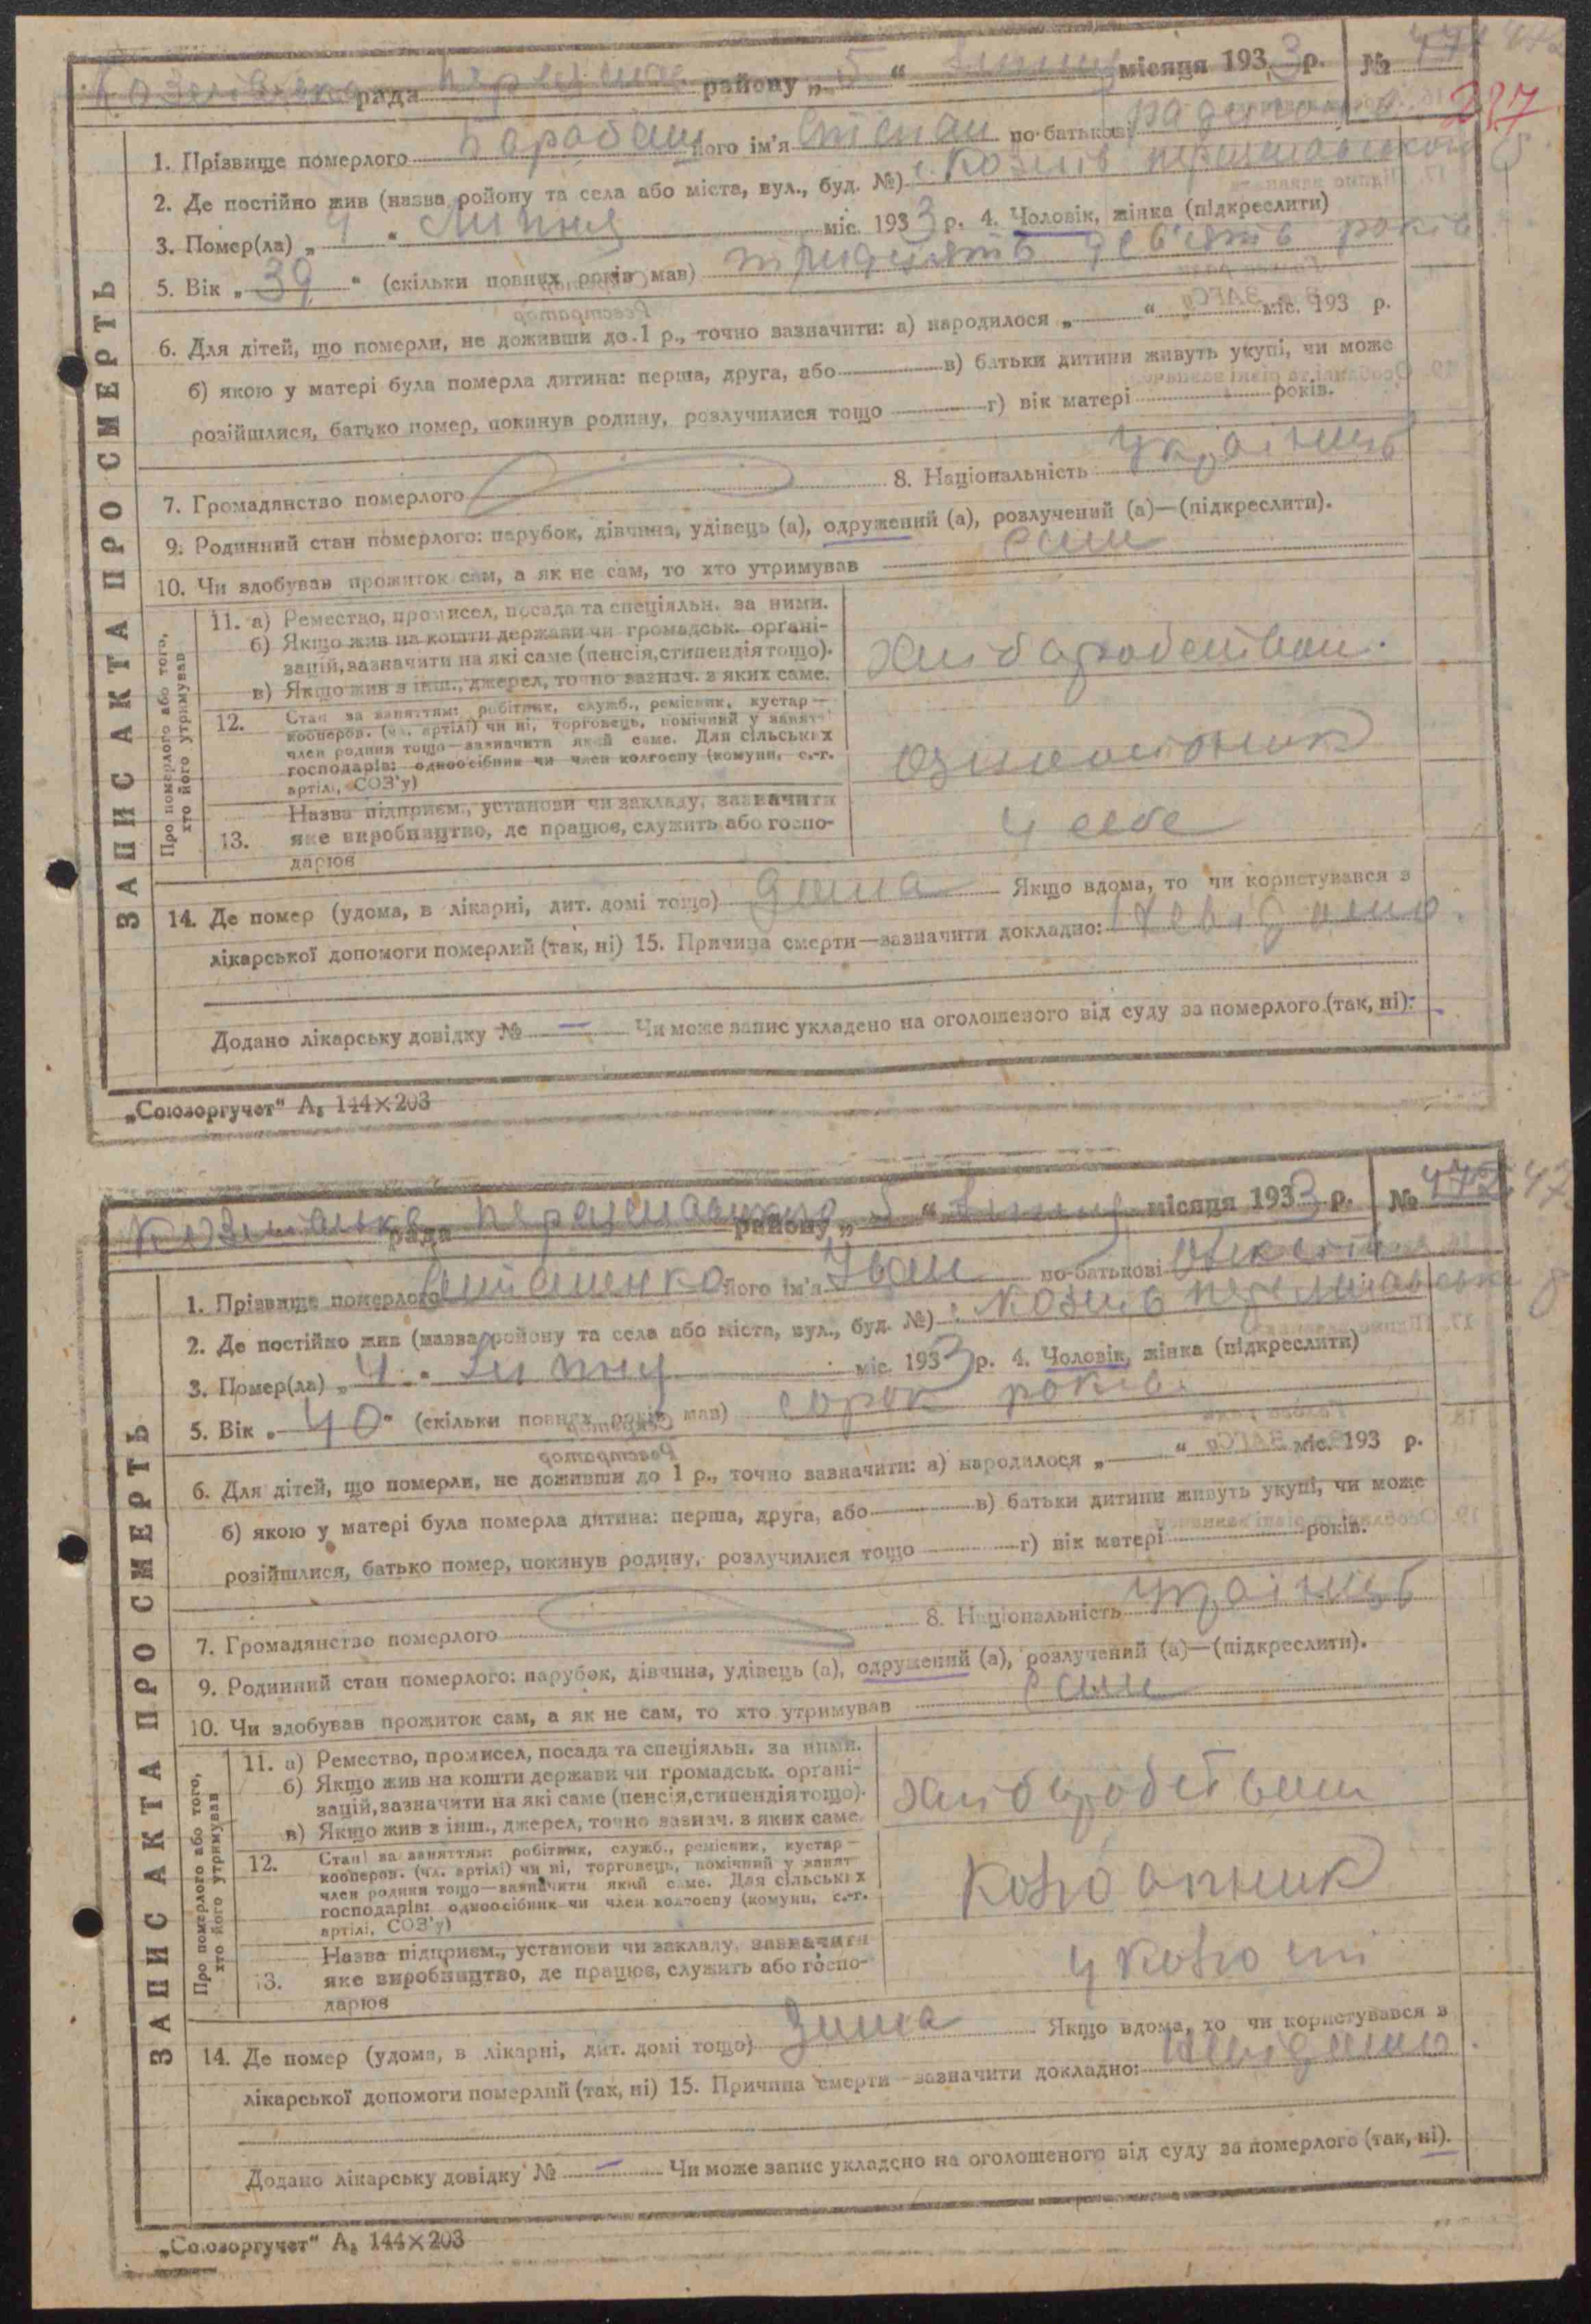 рада района „ 5 “ Липня місяця 193 3 р. № 471
287
1. Прізвище померлого Барабаш його ім'я Степан по батькові
2. Де постійно жив (назва ройону та села або міста, вул., буд. №) с. Козлів
3. Помер(ла) „ 4 “ Липня міс. 193 3 р. 4. Чоловік, жінка (підкреслити)
5. Вік „ 39 “ (скільки повних років мав) тридцять дев'ять років
6. Для дітей, що померли, не доживши до 1 р., точно зазначити: а) народилося „ “ міс. 193 р.
б) якою у матері була померла дитина: перша, друга, або в) батьки дитини живуть укупі, чи може
розійшлися, батько помер, покинув родину, розлучилися тощо г) вік матері років.
7. Громадянство померлого 8. Національність українець
9. Родинний стан померлого: парубок, дівчина, удівець (а), одружений (а), розлучений (а)—(підкреслити).
10. Чи здобував прожиток сам, а як не сам, то хто утримував сам
ЗАПИС АКТА ПРО СМЕРТЬ
Про померлого або того, хто його утримував
11. а) Ремество, промисел, посада та спеціяльн. за ними.
б) Якщо жив на кошти держави чи громадськ. органі-
зацій, зазначити на які саме (пенсія, стипендія тощо).
в) Якщо жив з інш., джерел, точно зазнач. з яких саме.
Хліборобством.
12. Стан за заняттям: робітник, служб., ремісник, кустар—
кооперов. (чл. артілі) чи ні, торговець, помічний у занят
член родини тощо—зазначити який саме. Для сільських
господарів: одноосібник чи член колгоспу (комуни, с.-г.
артілі, СОЗ'у)
13. Назва підприєм., установи чи закладу, зазначити
яке виробництво, де працює, служить або госпо-
дарює
у себе
14. Де помер (удома, в лікарні, дит. домі тощо) дома Якщо вдома, то чи користувався з
лікарської допомоги померлий (так, ні) 15. Причина смерти—зазначити докладно: Невідомо.
Додано лікарську довідку № — Чи може запис укладено на оголошеного від суду за померлого (так, ні).
„Союзоргучет“ А₅ 144×203
рада района „ 5 “ Липня місяця 193 3 р. № 472
1. Прізвище померлого його ім'я Іван по батькові
2. Де постійно жив (назва ройону та села або міста, вул., буд. №) с. Козлів
3. Помер(ла) „ 4 “ Липня міс. 193 3 р. 4. Чоловік, жінка (підкреслити)
5. Вік „ 40 “ (скільки повних років мав) сорок років.
6. Для дітей, що померли, не доживши до 1 р., точно зазначити: а) народилося „ “ міс. 193 р.
б) якою у матері була померла дитина: перша, друга, або в) батьки дитини живуть укупі, чи може
розійшлися, батько помер, покинув родину, розлучилися тощо г) вік матері років.
7. Громадянство померлого 8. Національність українець
9. Родинний стан померлого: парубок, дівчина, удівець (а), одружений (а), розлучений (а)—(підкреслити).
10. Чи здобував прожиток сам, а як не сам, то хто утримував сам
ЗАПИС АКТА ПРО СМЕРТЬ
Про померлого або того, хто його утримував
11. а) Ремество, промисел, посада та спеціяльн. за ними.
б) Якщо жив на кошти держави чи громадськ. органі-
зацій, зазначити на які саме (пенсія, стипендія тощо).
в) Якщо жив з інш., джерел, точно зазнач. з яких саме.
Хліборобством
12. Стан за заняттям: робітник, служб., ремісник, кустар—
кооперов. (чл. артілі) чи ні, торговець, помічний у занят
член родини тощо—зазначити який саме. Для сільських
господарів: одноосібник чи член колгоспу (комуни, с.-г.
артілі, СОЗ'у)
13. Назва підприєм., установи чи закладу, зазначити
яке виробництво, де працює, служить або госпо-
дарює
у колгоспі
14. Де помер (удома, в лікарні, дит. домі тощо) Якщо вдома, то чи користувався з
лікарської допомоги померлий (так, ні) 15. Причина смерти—зазначити докладно: Невідомо.
Додано лікарську довідку № — Чи може запис укладено на оголошеного від суду за померлого (так, ні).
„Союзоргучет“ А₅ 144×203